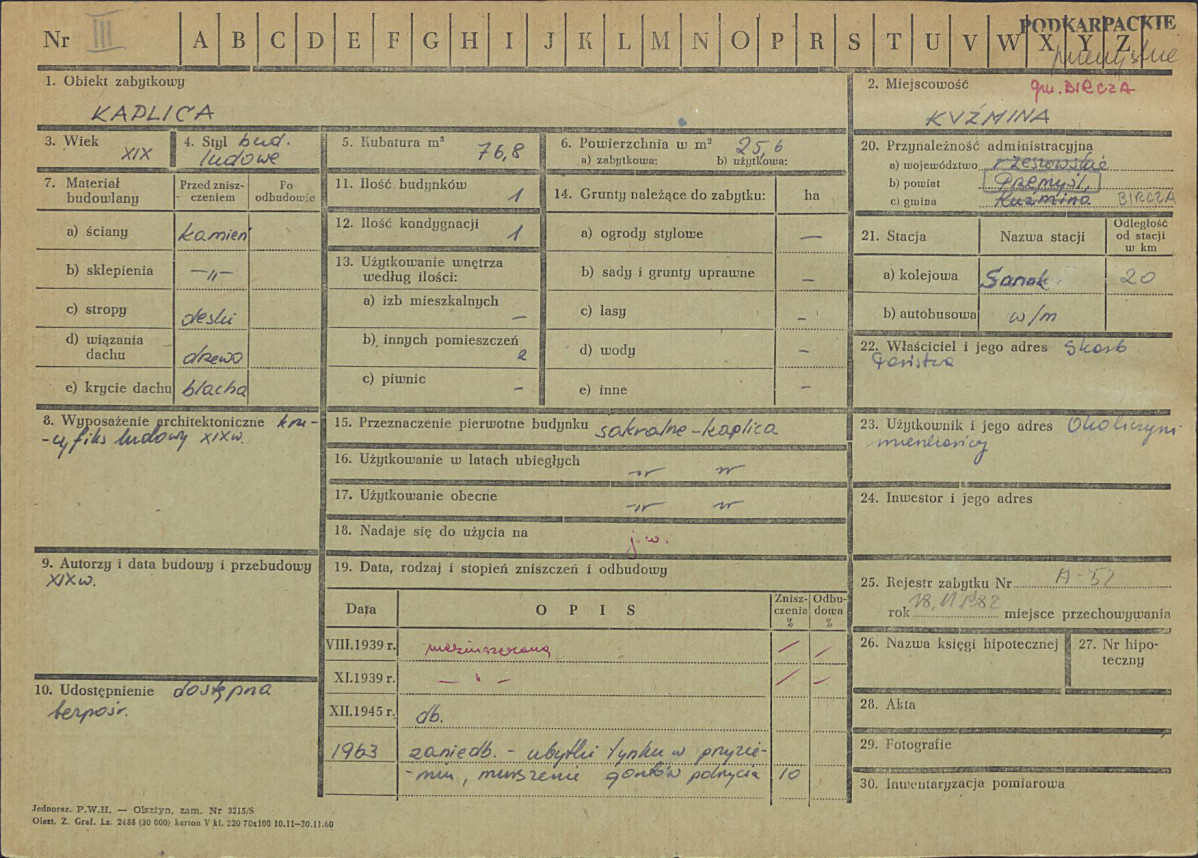 Nr III A B C D E F G H I J K L M N O P R S T U V W X Y Z
PODKARPACKIE
przemyskie
1. Obiekt zabytkowy
KAPLICA
2. Miejscowość gm. BIRCZA
KUŹMINA
3. Wiek
XIX
4. Styl bud.
ludowe
5. Kubatura m³
76,8
6. Powierzchnia w m² 25,6
a) zabytkowa: b) użytkowa:
20. Przynależność administracyjna
a) województwo rzeszowskie
b) powiat Przemyśl,
c) gmina Kuźmina BIRCZA
7. Materiał budowlany
Przed zniszczeniem
Po odbudowie
a) ściany kamień
b) sklepienia —„—
c) stropy deski
d) wiązania dachu drzewo
e) krycie dachu blacha
11. Ilość budynków 1
12. Ilość kondygnacji 1
13. Użytkowanie wnętrza
według ilości:
a) izb mieszkalnych —
b) innych pomieszczeń 2
c) piwnic —
14. Grunty należące do zabytku: ha
a) ogrody stylowe —
b) sady i grunty uprawne —
c) lasy —
d) wody —
e) inne —
21. Stacja Nazwa stacji Odległość od stacji w km
a) kolejowa Sanok 20
b) autobusowa w/m
22. Właściciel i jego adres Skarb
Państwa
8. Wyposażenie architektoniczne kru-
-cyfiks ludowy XIXw.
15. Przeznaczenie pierwotne budynku sakralne-kaplica
16. Użytkowanie w latach ubiegłych —„— „
17. Użytkowanie obecne —„— „
18. Nadaje się do użycia na j.w.
23. Użytkownik i jego adres Okoliczni
mieszkańcy
24. Inwestor i jego adres
9. Autorzy i data budowy i przebudowy
XIXw.
19. Data, rodzaj i stopień zniszczeń i odbudowy
Data O P I S Zniszczenia % Odbudowa %
VIII.1939 r. niezniszczona / /
XI.1939 r. — „ — / —
XII.1945 r. db.
1963 zaniedb. - ubytki tynku w przyzie-
-miu, murszenie gontów pokrycia 10
25. Rejestr zabytku Nr A-52
rok 18.11.1982 miejsce przechowywania
26. Nazwa księgi hipotecznej
27. Nr hipoteczny
10. Udostępnienie dostępna
bezpośr.
28. Akta
29. Fotografie
30. Inwentaryzacja pomiarowa
Jednoraz. P.W.H. — Olsztyn, zam. Nr 3215/S
Olszt. Z. Graf. Lz. 2488 (30 000) karton V kl. 220 70x100 10.11—30.11.60